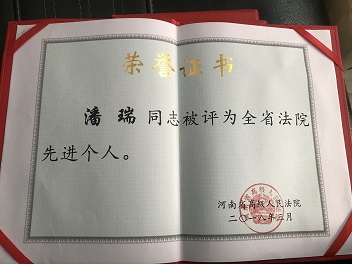 荣誉证书
潘瑞 同志被评为全省法院
先进个人。
河南省高级人民法院
二〇一八年三月